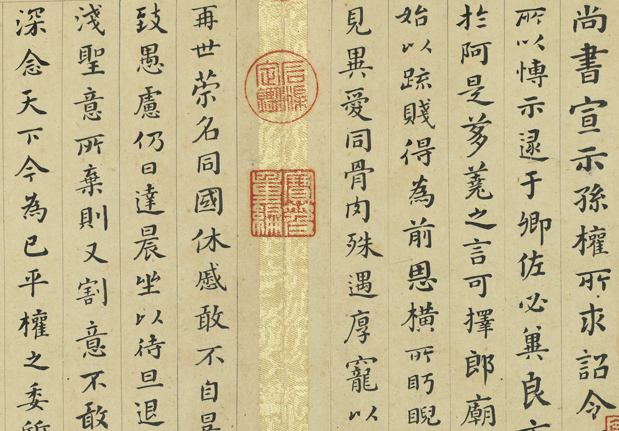 尚書宣示孫權所求詔令
所以博示逮于卿佐必冀良
於阿是芻蕘之言可擇郎廟
始以疏賤得為前恩橫所眄睨
見異愛同骨肉殊遇厚寵以
再世榮名同國休慼敢不自
致愚慮仍日達晨坐以待旦退
淺聖意所棄則又割意不敢
深念天下今為已平權之委質